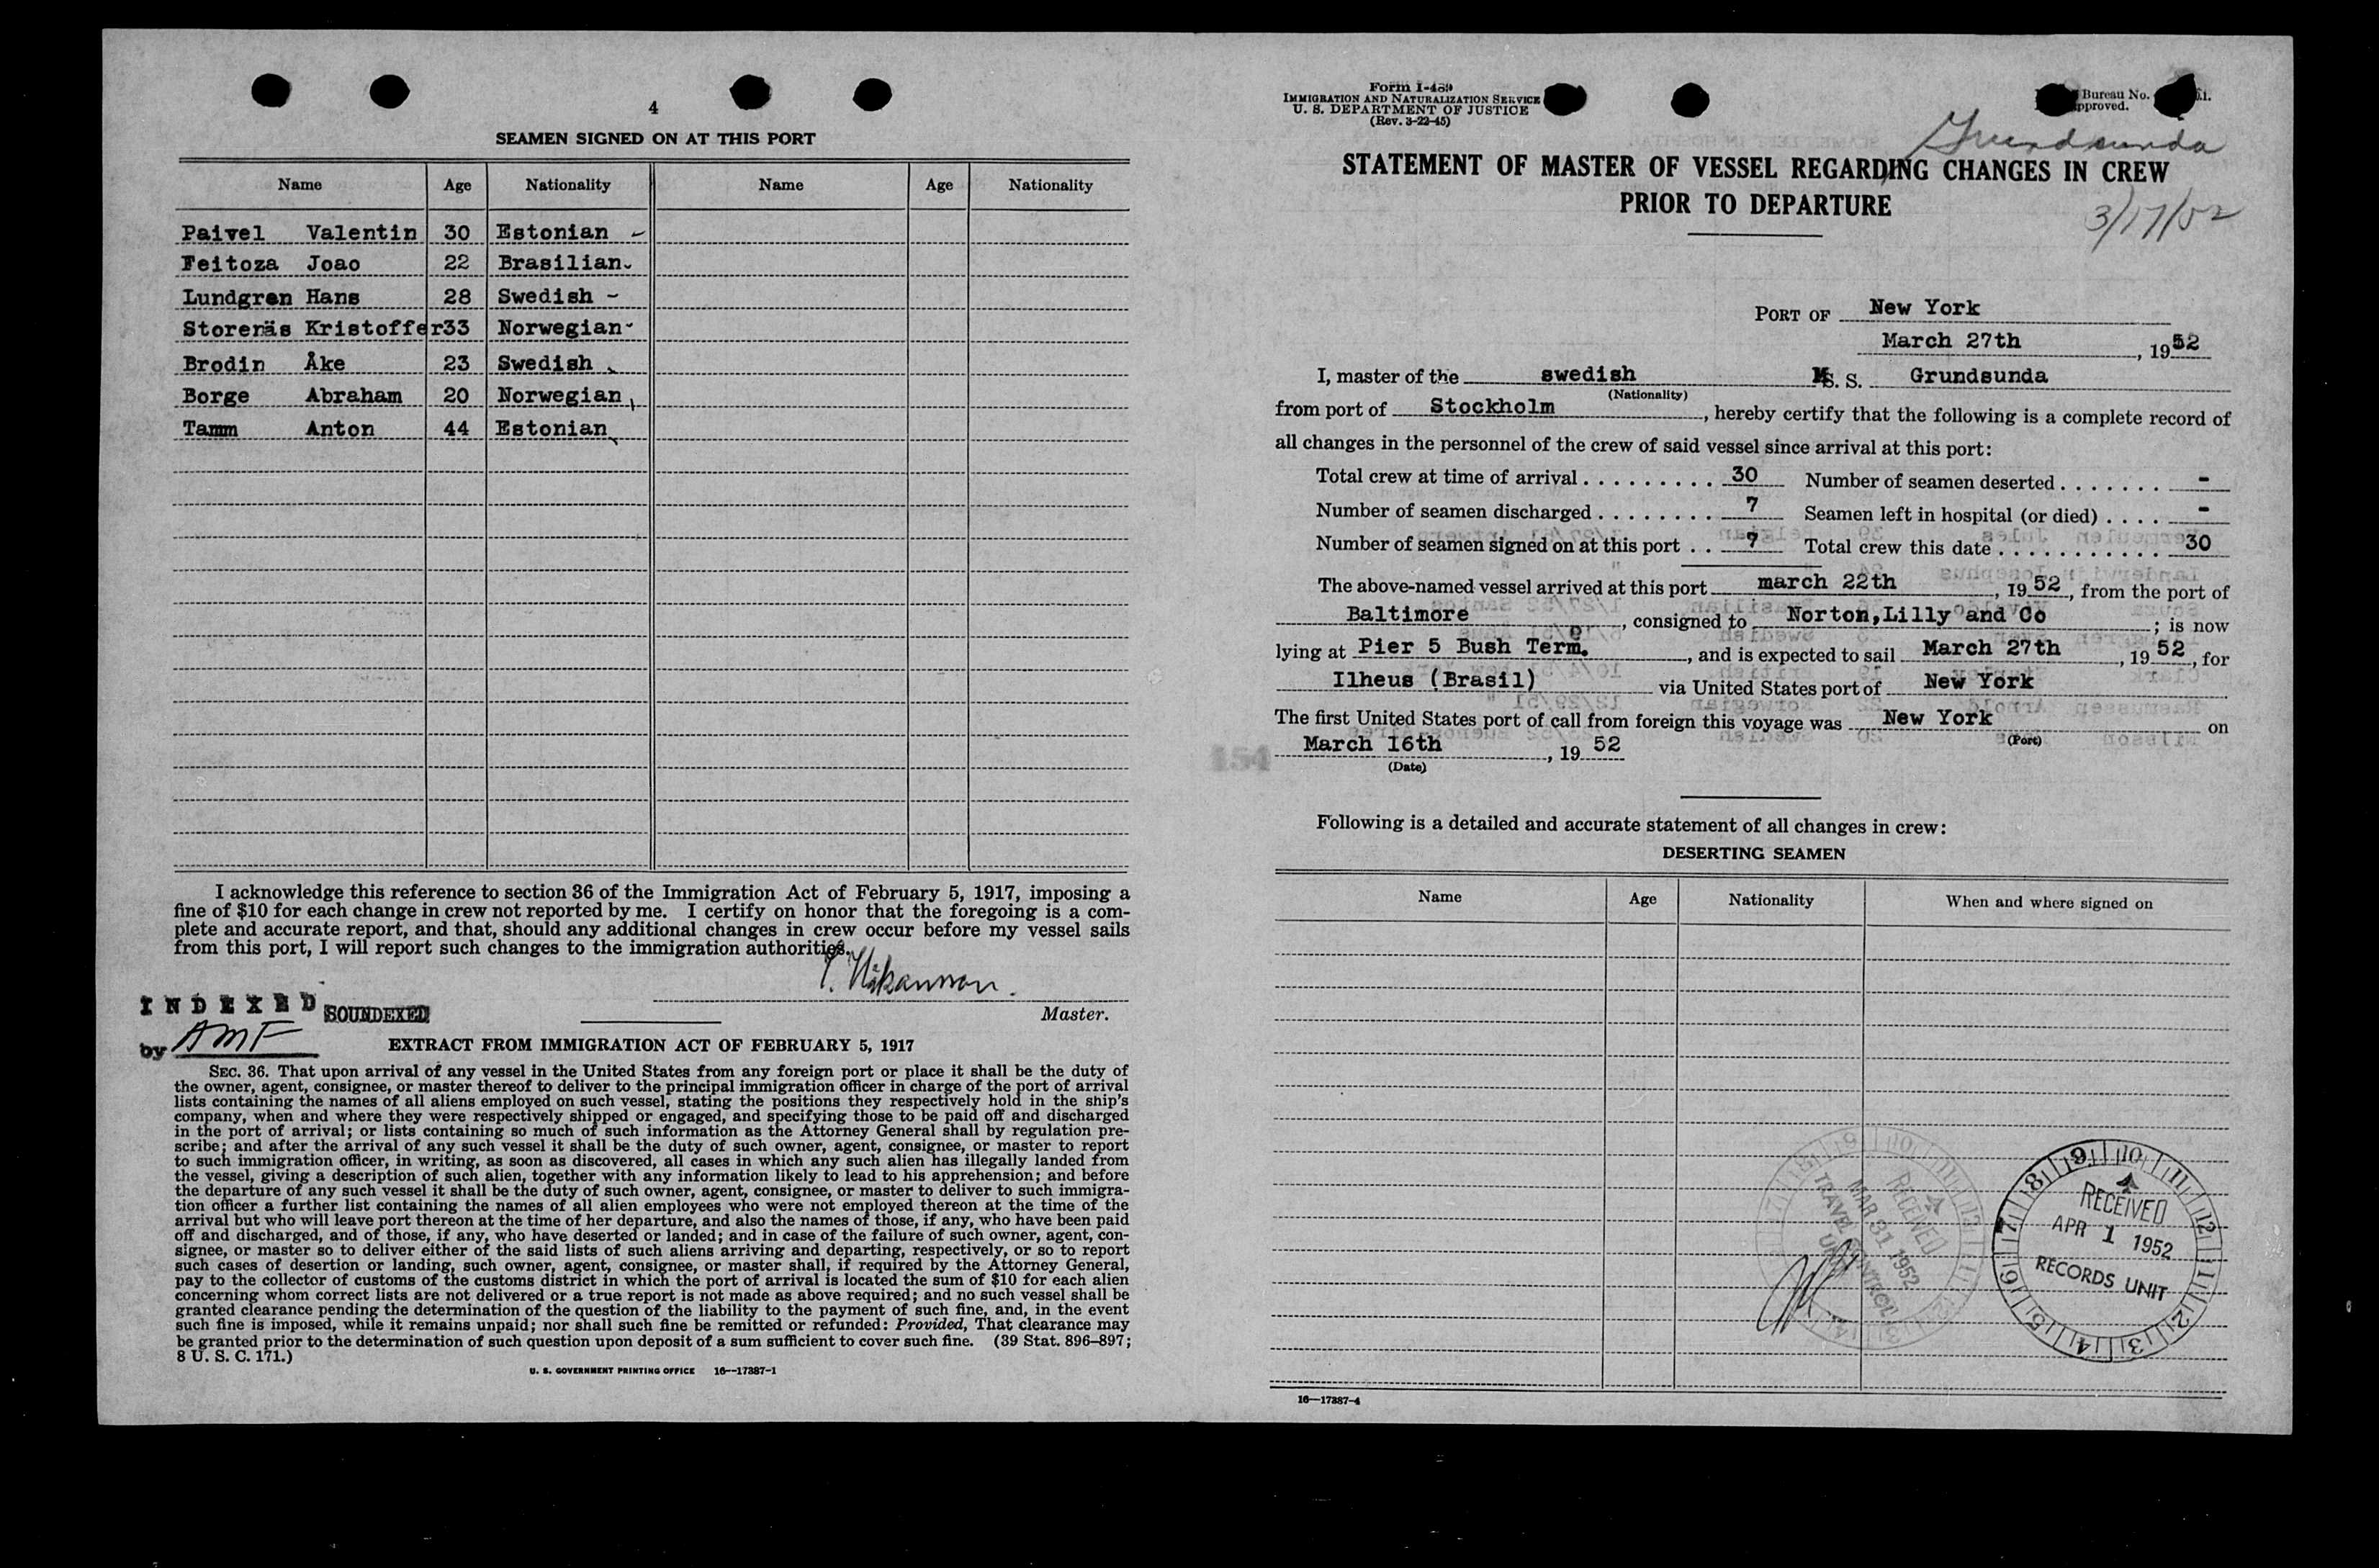 4
SEAMEN SIGNED ON AT THIS PORT
Name Age Nationality Name Age Nationality
Paivel Valentin 30 Estonian
Feitoza Joao 22 Brasilian
Lundgren Hans 28 Swedish
Storenäs Kristoffer 33 Norwegian
Brodin Åke 23 Swedish
Borge Abraham 20 Norwegian
Tamm Anton 44 Estonian
I acknowledge this reference to section 36 of the Immigration Act of February 5, 1917, imposing a
fine of $10 for each change in crew not reported by me. I certify on honor that the foregoing is a com-
plete and accurate report, and that, should any additional changes in crew occur before my vessel sails
from this port, I will report such changes to the immigration authorities.
Master.
INDEXED SOUNDEXED
by AMF
EXTRACT FROM IMMIGRATION ACT OF FEBRUARY 5, 1917
SEC. 36. That upon arrival of any vessel in the United States from any foreign port or place it shall be the duty of
the owner, agent, consignee, or master thereof to deliver to the principal immigration officer in charge of the port of arrival
lists containing the names of all aliens employed on such vessel, stating the positions they respectively hold in the ship's
company, when and where they were respectively shipped or engaged, and specifying those to be paid off and discharged
in the port of arrival; or lists containing so much of such information as the Attorney General shall by regulation pre-
scribe; and after the arrival of any such vessel it shall be the duty of such owner, agent, consignee, or master to report
to such immigration officer, in writing, as soon as discovered, all cases in which any such alien has illegally landed from
the vessel, giving a description of such alien, together with any information likely to lead to his apprehension; and before
the departure of any such vessel it shall be the duty of such owner, agent, consignee, or master to deliver to such immigra-
tion officer a further list containing the names of all alien employees who were not employed thereon at the time of the
arrival but who will leave port thereon at the time of her departure, and also the names of those, if any, who have been paid
off and discharged, and of those, if any, who have deserted or landed; and in case of the failure of such owner, agent, con-
signee, or master so to deliver either of the said lists of such aliens arriving and departing, respectively, or so to report
such cases of desertion or landing, such owner, agent, consignee, or master shall, if required by the Attorney General,
pay to the collector of customs of the customs district in which the port of arrival is located the sum of $10 for each alien
concerning whom correct lists are not delivered or a true report is not made as above required; and no such vessel shall be
granted clearance pending the determination of the question of the liability to the payment of such fine, and, in the event
such fine is imposed, while it remains unpaid; nor shall such fine be remitted or refunded: Provided, That clearance may
be granted prior to the determination of such question upon deposit of a sum sufficient to cover such fine. (39 Stat. 896–897;
8 U. S. C. 171.)
U. S. GOVERNMENT PRINTING OFFICE 16—17387-1
Form I-489
IMMIGRATION AND NATURALIZATION SERVICE
U. S. DEPARTMENT OF JUSTICE
(Rev. 3-22-45)
Bureau No.
pproved.
Grundsunda
STATEMENT OF MASTER OF VESSEL REGARDING CHANGES IN CREW
PRIOR TO DEPARTURE
3/17/52
PORT OF New York
March 27th, 1952
I, master of the swedish M S. S. Grundsunda
(Nationality)
from port of Stockholm, hereby certify that the following is a complete record of
all changes in the personnel of the crew of said vessel since arrival at this port:
Total crew at time of arrival 30 Number of seamen deserted -
Number of seamen discharged 7 Seamen left in hospital (or died) -
Number of seamen signed on at this port 7 Total crew this date 30
The above-named vessel arrived at this port march 22th, 1952, from the port of
Baltimore, consigned to Norton,Lilly and Co; is now
lying at Pier 5 Bush Term., and is expected to sail March 27th, 1952, for
Ilheus (Brasil) via United States port of New York
The first United States port of call from foreign this voyage was New York on
(Port)
March 16th, 1952
(Date)
154
Following is a detailed and accurate statement of all changes in crew:
DESERTING SEAMEN
Name Age Nationality When and where signed on
RECEIVED
MAR 31 1952
TRAVEL CONTROL
UNIT
RECEIVED
APR 1 1952
RECORDS UNIT
16—17387-4